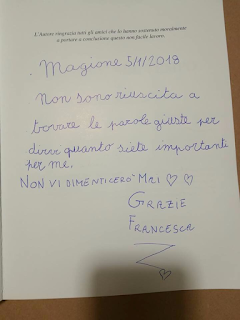 L'Autore ringrazia tutti gli amici che lo hanno sostenuto moralmente
a portare a conclusione questo non facile lavoro
. Magione 5/1/2018
Non sono riuscita a
trovare le parole giuste per
dirvi quanto siete importanti
per me.
NON VI DIMENTICERÒ MAI ♡ ♡
GRAZIE
FRANCESCA